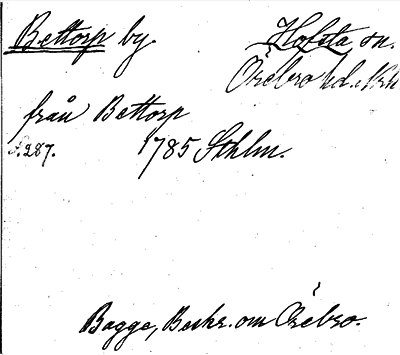 Bettorp by. Hofsta sn.
Örebro hd.
från Bettorp
s. 287. 1785 Sthlm.
Bagge, Beskr. om Örebro.